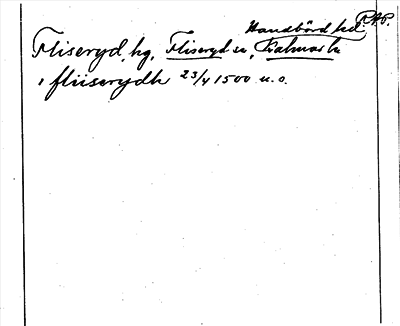 Handbörd hd RAP.
Fliseryd, hg, Fliseryd sn, Kalmar ln
i fliiserydh 23/4 1500 u.o.